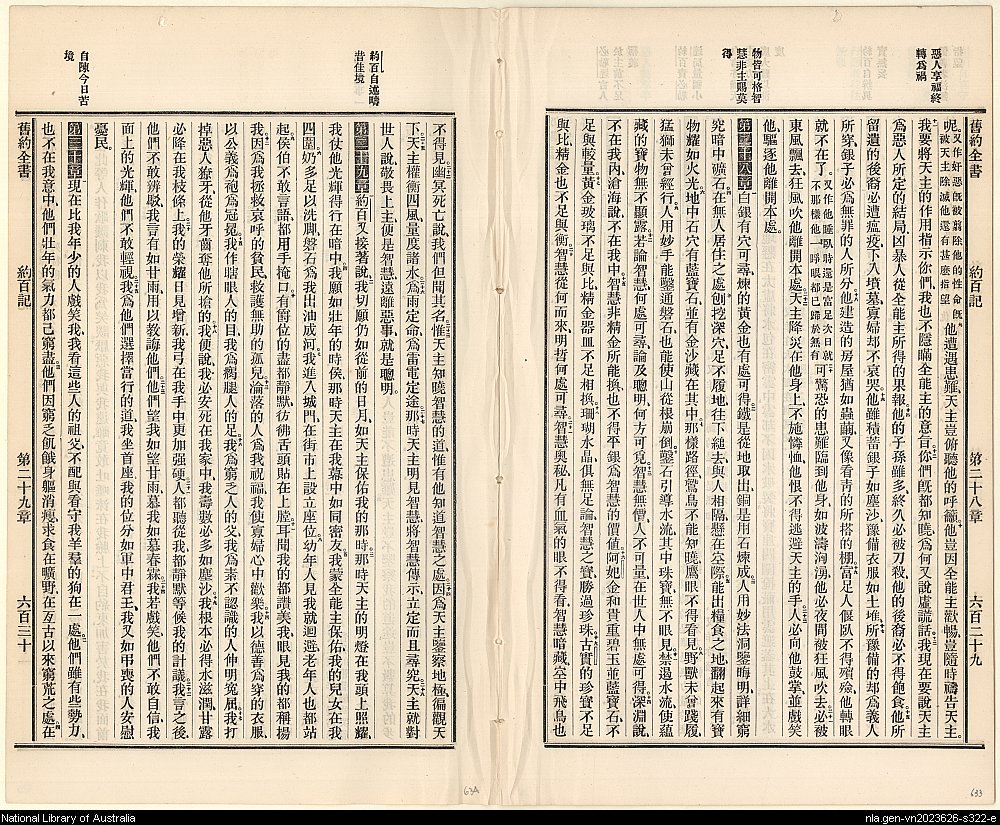 惡人享福終
轉爲禍
物皆可格智
慧非主賜莫
得
舊約全書 約百記 第二十八章 六百二十九
呢。又作奸惡旣被翦除他的性命旣被天主除滅他還有甚麽指望他遭遇患難天主豈俯聽他的呼籲他豈因全能主歡暢豈隨時禱告天主。
我要將天主的作用指示你們我也不隱瞞全能主的意旨你們旣都知曉爲何又說虛謊話我現在要說天主
爲惡人所定的結局凶暴人從全能主所得的果報他的子孫雖多終久必被刀殺他的後裔必不得飽食他所
留遺的後裔必遭瘟疫下入墳墓寡婦却不哀哭他雖積蓄銀子如塵沙豫備衣服如土堆所豫備的却爲義人
所穿銀子必爲無罪的人所分他建造的房屋猶如蟲繭又像看靑的所搭的棚富足人偃臥不得殯殮他轉眼
就不在了。又作他睡臥時還是富足次日就不那樣他一睜眼都已歸於無有可驚恐的患難臨到他身如波濤洶湧他必夜間被狂風吹去必被
東風飄去狂風吹他離開本處天主降災在他身上不施憐恤他恨不得逃避天主的手人必向他鼓掌並戲笑
他驅逐他離開本處。
第二十八章 白銀有穴可尋煉的黃金也有處可得鐵是從地取出銅是用石煉成人用妙法洞鑒晦明詳細窮
究暗中礦石在無人居住之處刨挖深穴足不履地往下縋去與人相隔懸在空際能出糧食之地翻起來有寶
物耀如火光地中石穴有藍寶石並有金沙藏在其中那樣路徑鷙鳥不能知曉鷹眼不得看見野獸未曾踐履
猛獅未曾經行人用妙手能鑿通磐石也能使山從根崩倒鑿石引導水流其中珠寶無不眼見禁遏水流使蘊
藏的寶物無不顯露若論智慧何處可尋論及聰明何方可覓智慧無價人不可量在世人中無處可得深淵說
不在我內滄海說不在我中智慧非精金所能換也不得平銀爲智慧的價値阿妃金和貴重碧玉並藍寶石不
足與較量黃金玻璃不足與比精金器皿不足相換珊瑚水晶俱無足論智慧之寶勝過珍珠古實的珍寶不足
與比精金也不足與衡智慧從何而來明哲何處可尋智慧奧秘凡有血氣的眼不得看智慧暗藏空中飛鳥也
約百自述疇
昔佳境
自陳今日苦
境
不得見幽冥死亡說我們但聞其名惟天主知曉智慧的道惟有他知道智慧之處因爲天主鑒察地極徧觀天
下天主權衡四風量度諸水爲雨定命爲雷電定途那時天主明見智慧將智慧傳示立定而且尋究天主就對
世人說敬畏上主便是智慧遠離惡事就是聰明。
第二十九章 約百又接著說我切願仍如從前的日月如天主保佑我的那時那時天主的明燈在我頭上照耀
我仗他光輝得行在暗中我願如壯年的時侯那時天主在我幕中如同密友我蒙全能主保佑我的兒女在我
四圍奶多足以洗脚磐石爲我出油成河我進入城門在街市上設立座位幼年人見我就迴避老年人也都站
起侯伯不敢言語都用手掩口有爵位的盡都靜默彷彿舌頭貼在上膛耳聞我的都讚美我眼見我的都稱揚
我因爲我拯救哀呼的貧民救護無助的孤兒淪落的人爲我祝福我使寡婦心中歡樂我以德善爲穿的衣服
以公義爲袍爲冠冕我作瞎眼人的目我爲瘸腿人的足我爲窮乏人的父我爲素不認識的人伸明寃屈我打
掉惡人獠牙從他牙齒奪他所搶的我便說我必安死在我家中我壽數必多如塵沙我根本必得水滋潤甘露
必降在我枝條上我的榮耀日見增新我弓在我手中更加强硬人都聽從我都靜默等候我的計議我言之後
他們不敢辨駁我言有如甘雨用以教誨他們他們望我如望甘雨慕我如慕春霖我若戲笑他們不敢自信我
面上的光輝他們不敢輕視我爲他們選擇當行的道我坐首座我的位分如軍中君王我又如弔喪的人安慰
憂民。
第三十章 現在比我年少的人戲笑我我看這些人的祖父不配與看守我羊羣的狗在一處他們雖有些勢力
也不在我意中他們壯年的氣力都已窮盡他們因窮乏飢餓身軀消瘦求食在曠野在亙古以來窮荒之處在
舊約全書 約百記 第二十九章 六百三十
634
633
National Library of Australia
nla.gen-vn2023626-s322-e